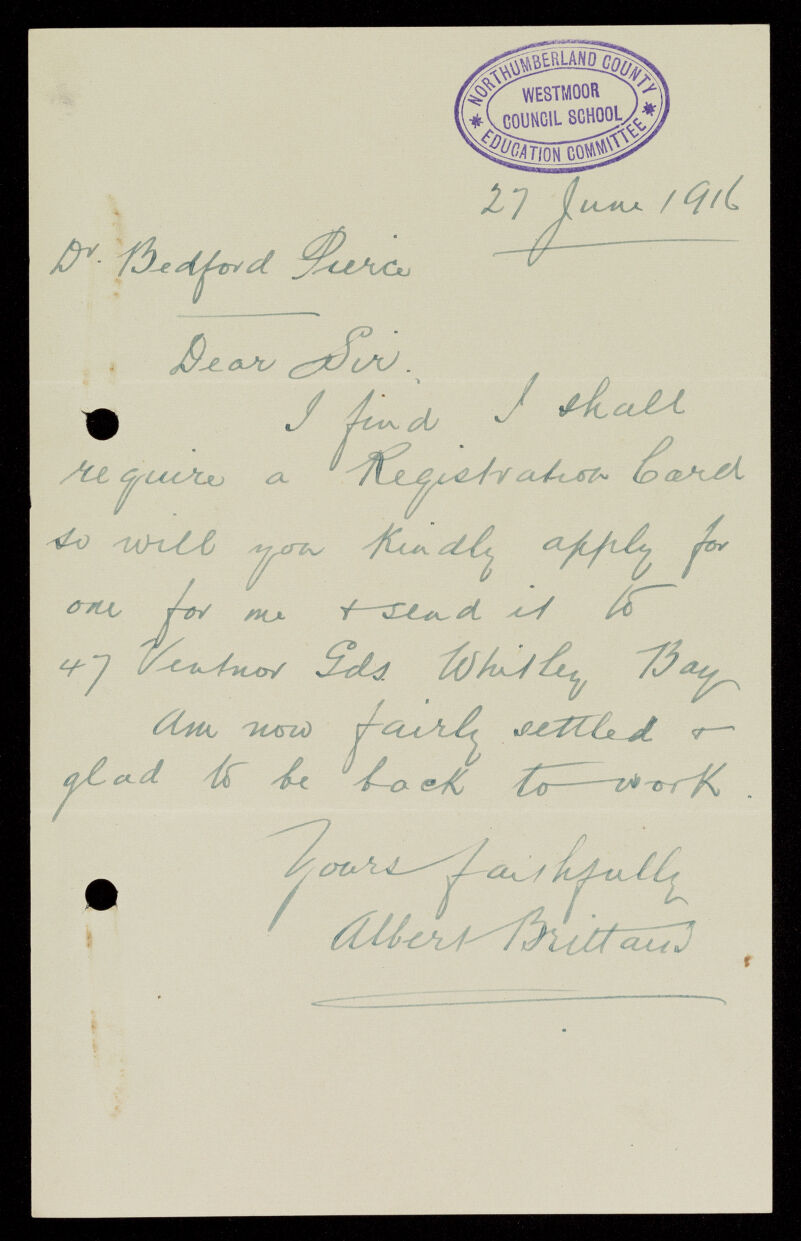 NORTHUMBERLAND COUNTY
WESTMOOR
COUNCIL SCHOOL
EDUCATION COMMITTEE
27 June 1916
Dr. Bedford Pierce
Dear Sir.
I find I shall
require a Registration Card
so will you kindly apply for
one for me & send it to
47 Ventnor Gds Whitley Bay
Am now fairly settled &
glad to be back to work.
Yours faithfully
Albert Brittain